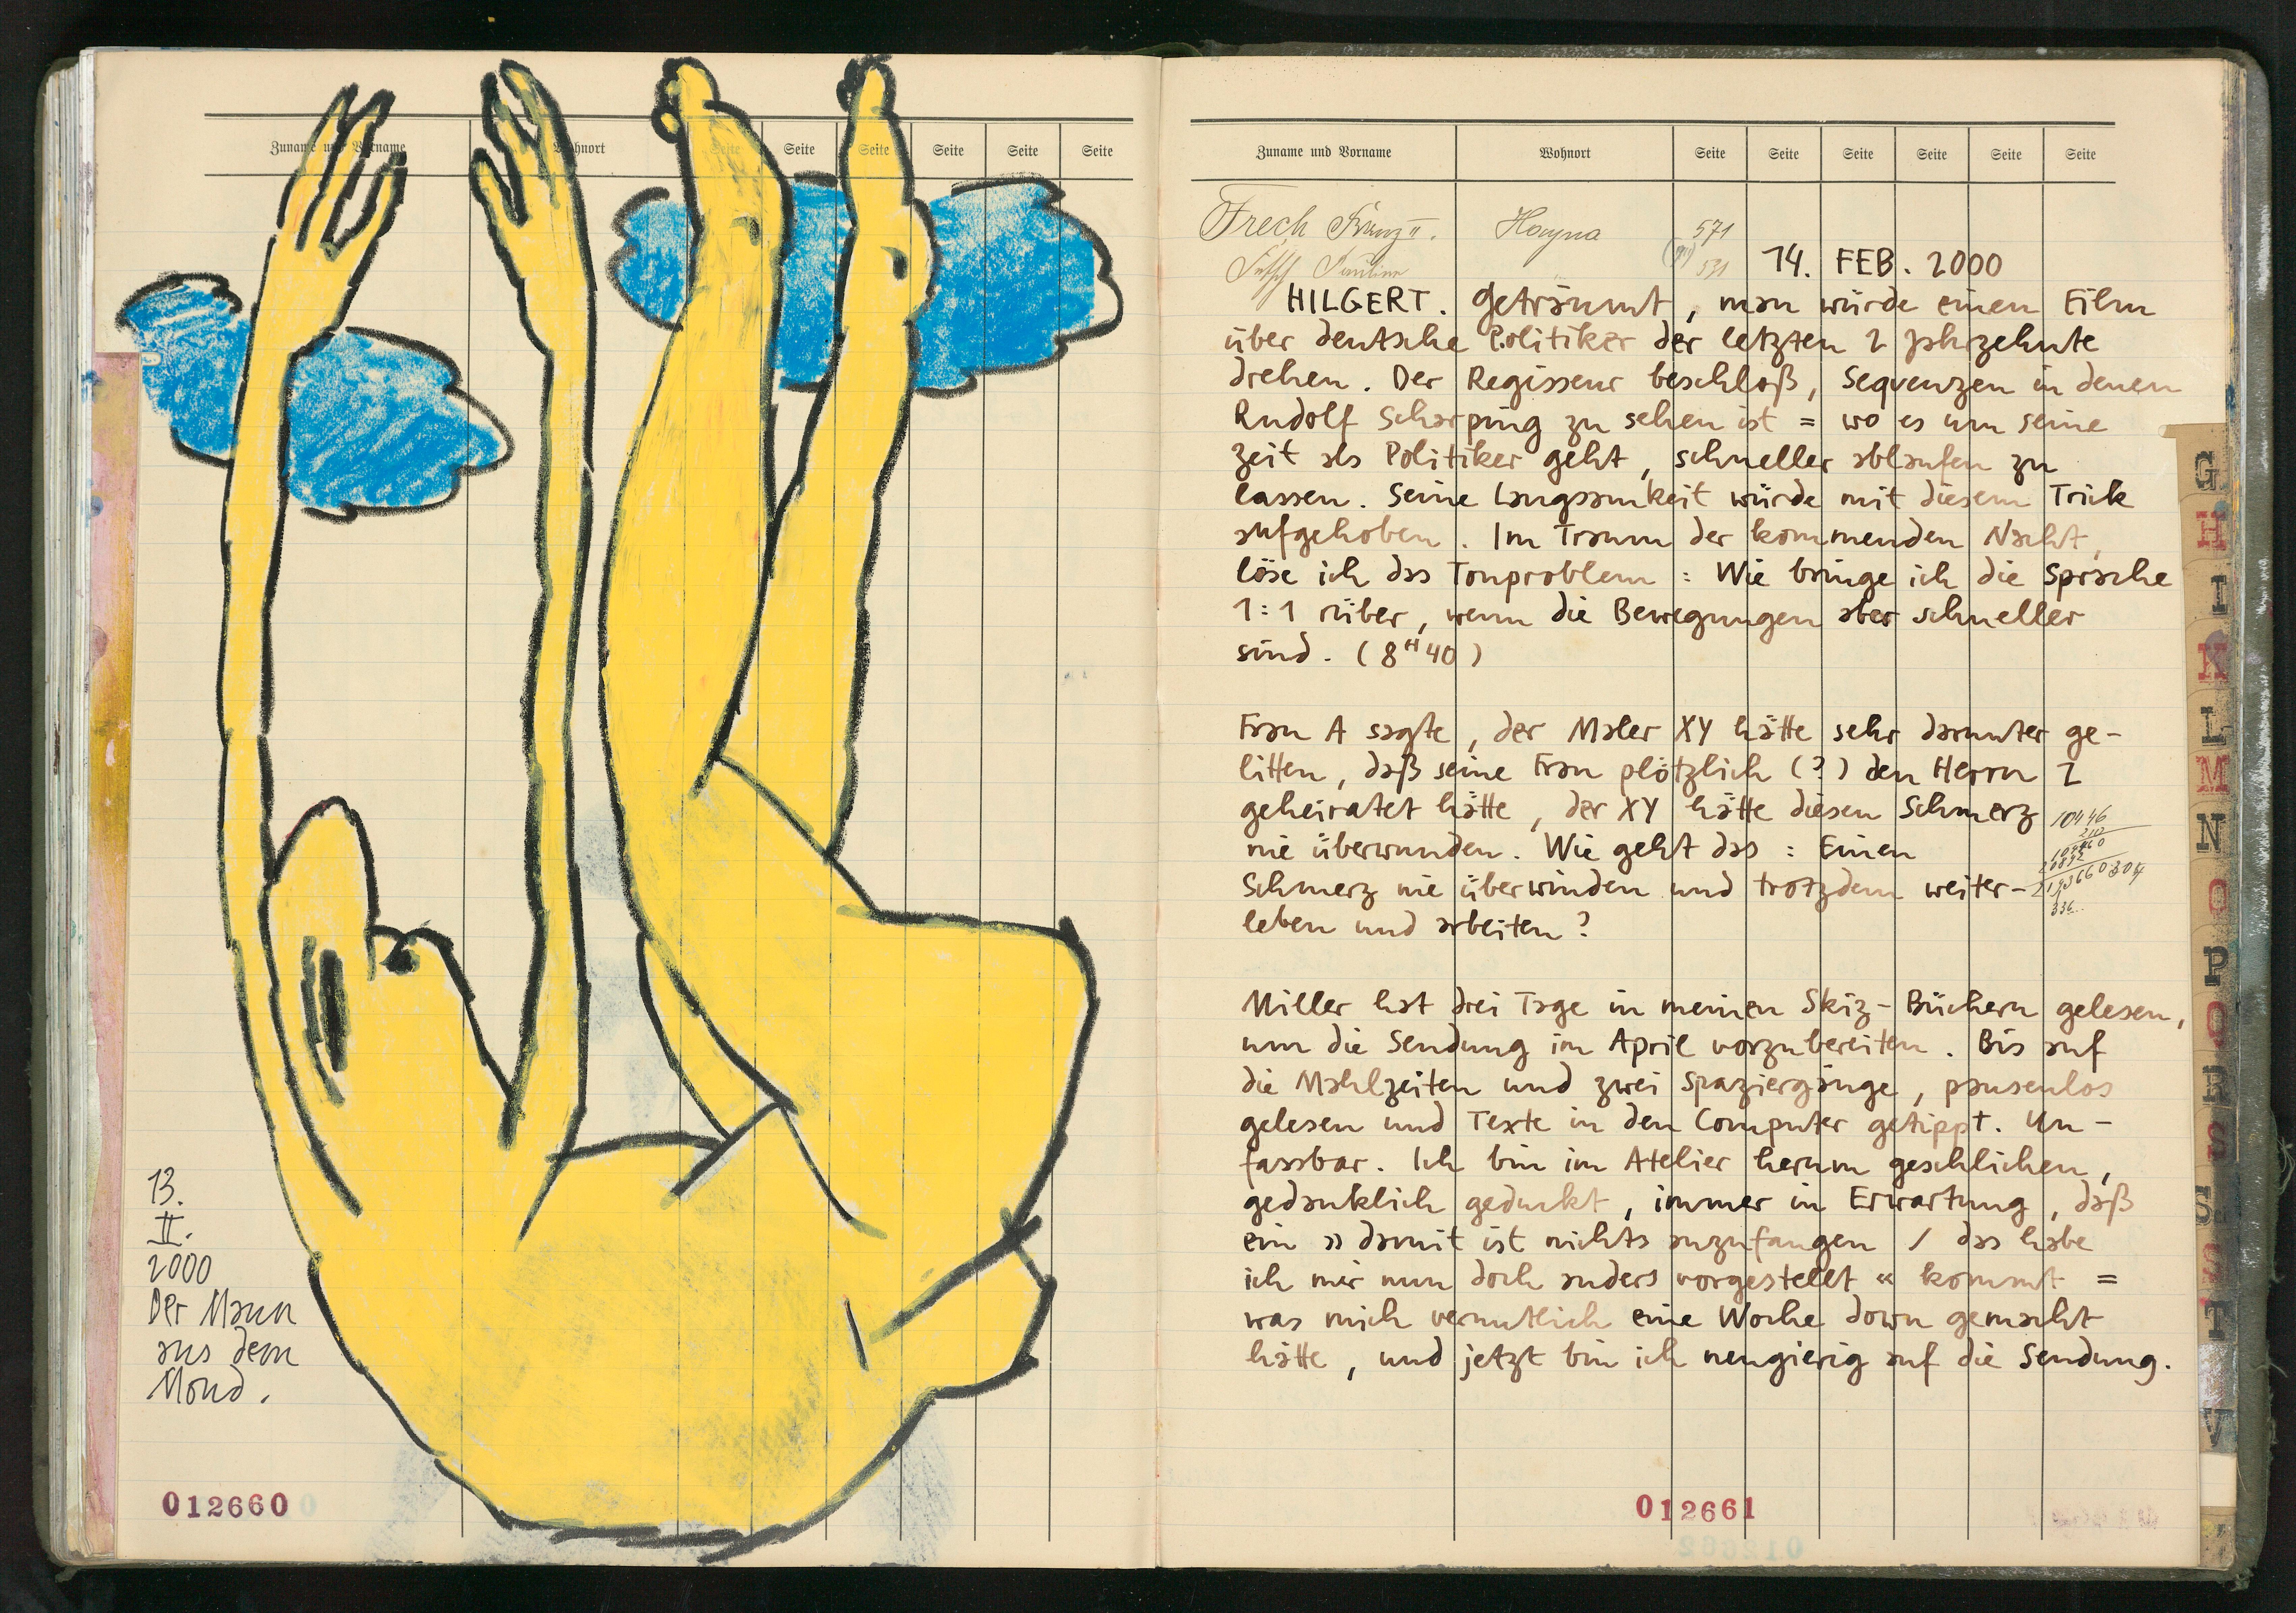 Zuname und Vorname Wohnort Seite Seite Seite Seite Seite Seite
13.
II.
2000
Der Mann
aus dem
Mond.
012660
Zuname und Vorname Wohnort Seite Seite Seite Seite Seite Seite
Frech Franz II. Hayna 571
531
14. FEB. 2000
HILGERT. Geträumt, man würde einen Film
über deutsche Politiker der letzten 2 Jahrzehnte
drehen. Der Regisseur beschloß, Sequenzen in denen
Rudolf Scharping zu sehen ist = wo es um seine
Zeit als Politiker geht, schneller ablaufen zu
lassen. Seine Langsamkeit würde mit diesem Trick
aufgehoben. Im Traum der kommenden Nacht,
löse ich das Tonproblem: Wie bringe ich die Sprache
1:1 rüber, wenn die Bewegungen aber schneller
sind. (8H40)
Frau A sagte, der Maler XY hätte sehr darunter ge-
litten, daß seine Frau plötzlich (?) den Herrn Z
geheiratet hätte, der XY hätte diesen Schmerz
nie überwunden. Wie geht das: Einen
Schmerz nie überwinden und trotzdem weiter-
leben und arbeiten?
10446
Miller hat drei Tage in meinen Skiz-Büchern gelesen,
um die Sendung im April vorzubereiten. Bis auf
die Mahlzeiten und zwei Spaziergänge, pausenlos
gelesen und Texte in den Computer getippt. Un-
fassbar. Ich bin im Atelier herum geschlichen,
gedanklich geduckt, immer in Erwartung, daß
ein »damit ist nichts anzufangen / das habe
ich mir nun doch anders vorgestellt« kommt =
was mich vermutlich eine Woche down gemacht
hätte, und jetzt bin ich neugierig auf die Sendung.
012661
G
H
I
K
L
M
N
O
P
Q
R
S
S
S
T
V